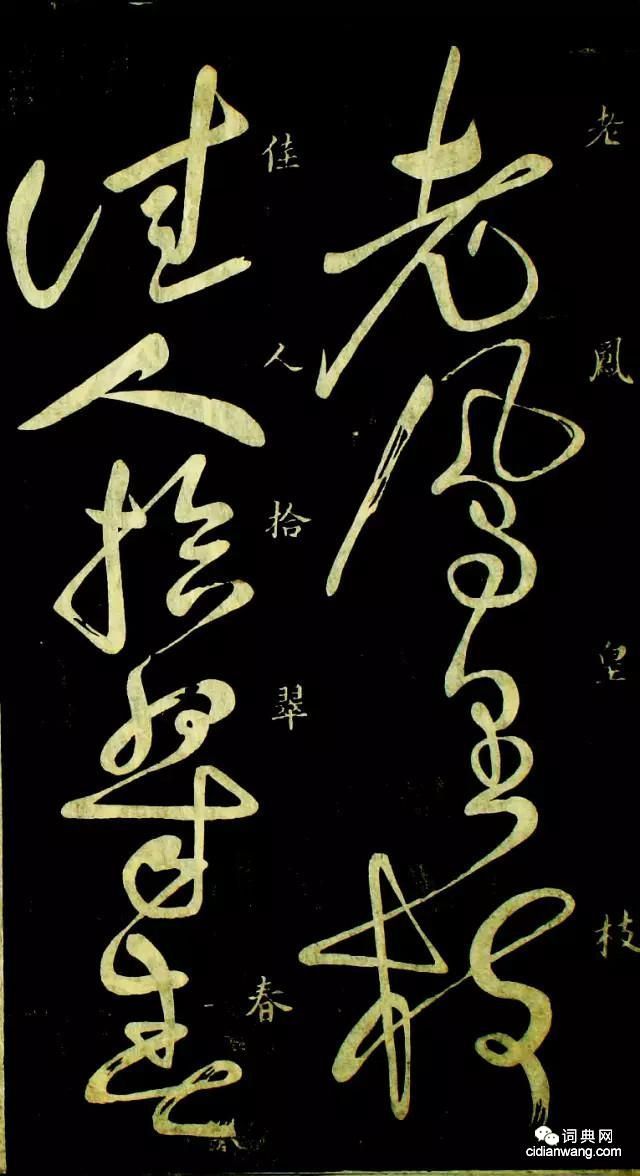 老鳳皇枝
老鳳皇枝
佳人拾翠春
佳人拾翠春
词典网
cidianwang.com